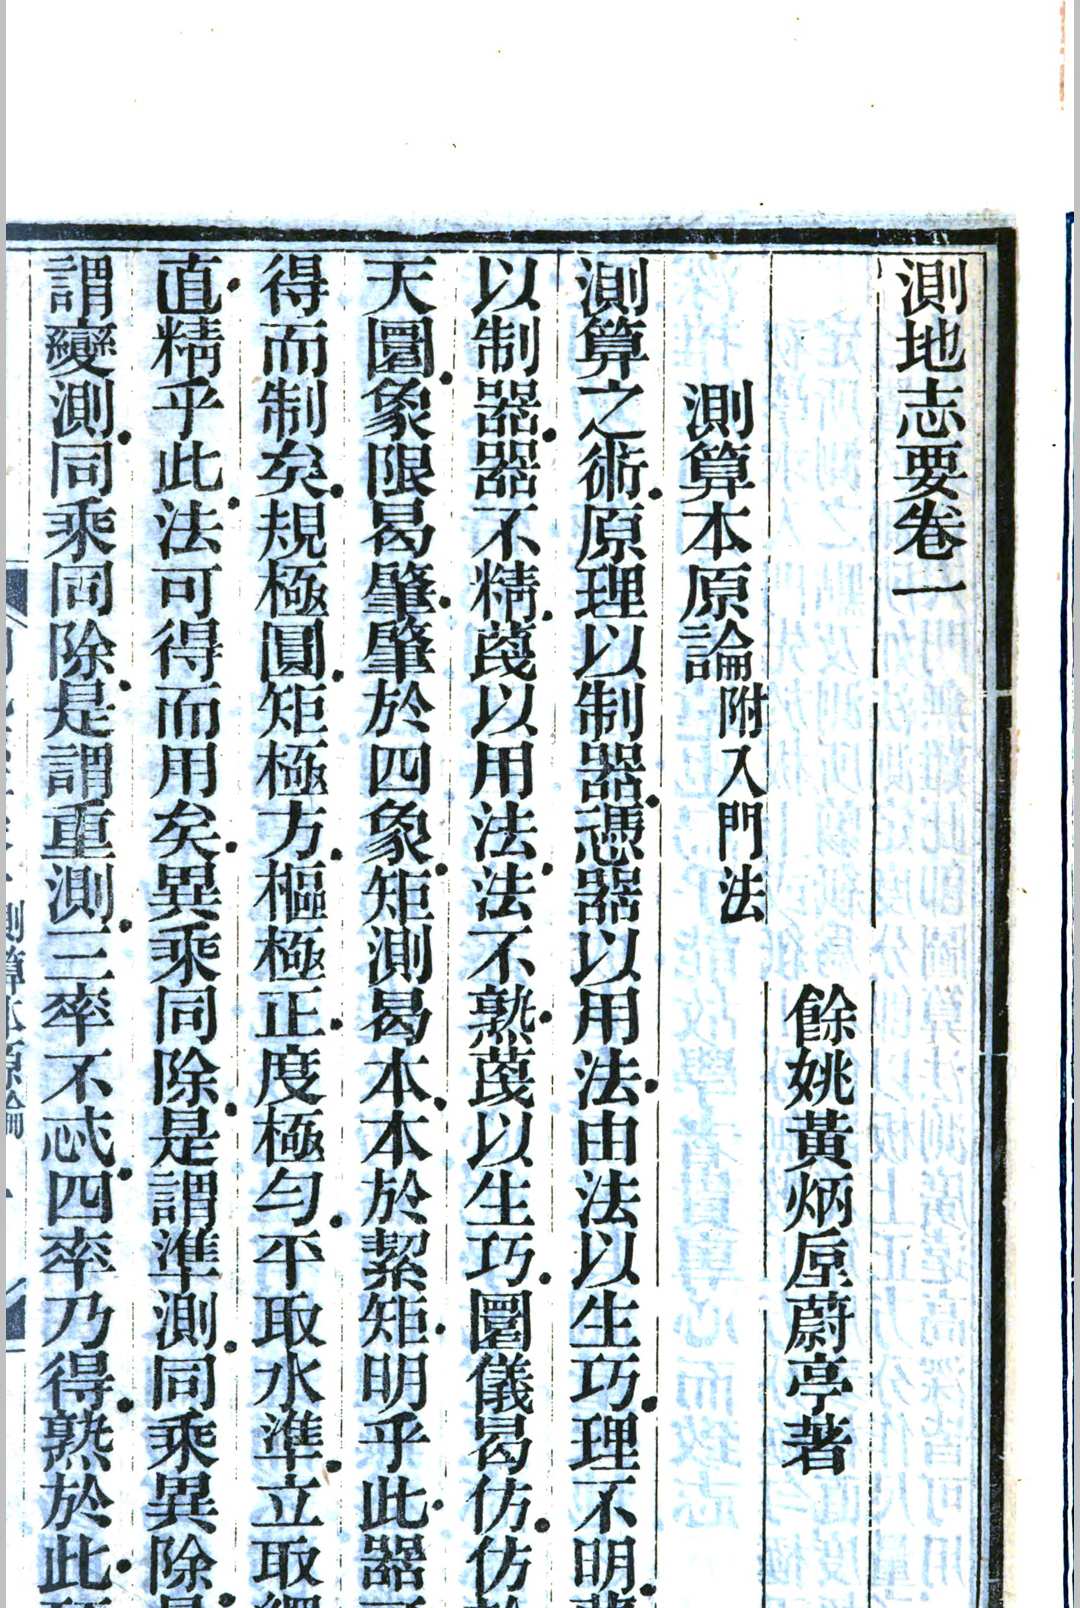 測地志要卷一
餘姚黃炳垕蔚亭著
測算本原論附入門法
測算之術原理以制器憑器以用法由法以生巧理不明
以制器器不精蔑以用法法不熟蔑以生巧圜儀曷仿仿
天圜象限曷肇肇於四象矩測曷本本於絜矩明乎此器
得而制矣規極圓矩極方樞極正度極勻平取水準立取
直精乎此法可得而用矣異乘同除是謂準測同乘異除
謂變測同乘同除是謂重測三率不忒四率乃得熟於此
測算本原論